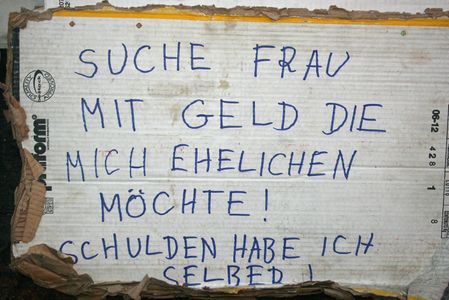 SUCHE FRAU
MIT GELD DIE
MICH EHELICHEN
MÖCHTE!
SCHULDEN HABE ICH
SELBER!
06-12
428
1
8